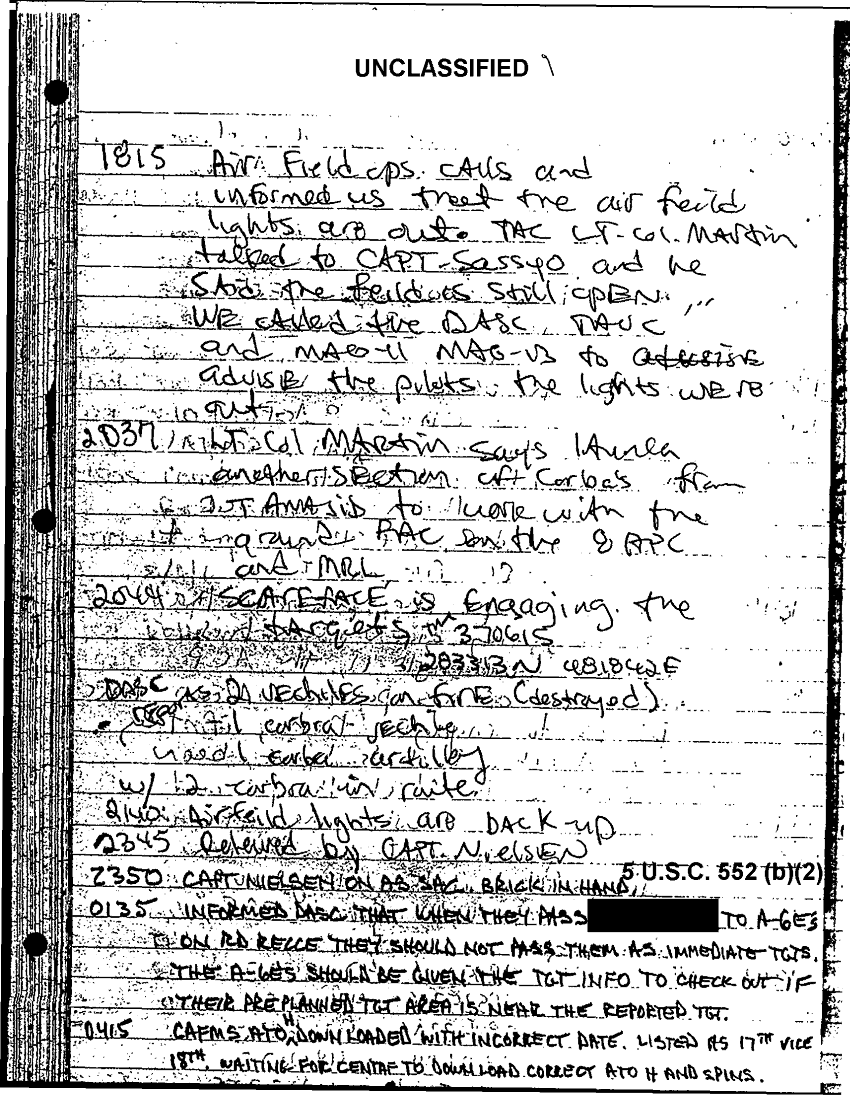 UNCLASSIFIED
1815 Air Field ops. calls and
informed us that the air feild
lights are out. TAC LT-Col. MARtin
talked to CAPT-Sassyo and he
said the feild is still opEN.
WE called the DASC, TAOC
and MAG-11 MAG-13 to
advisE the pilots the lights WERE
out
2037 LT Col MARtin says launch
another SEction of Corbas from
to work with the
ground FAC on the 8 APC
and MRL
2044 SCARFACE is Engaging the
tARgets 370615
283313N 481842E
DASC 21 VEchiles on firE (destroyed)
vechile
need
w/ 2 in route
2140 Airfeild lights are back up
2345 Relieved by CAPT. NielsEN
5 U.S.C. 552 (b)(2)
2350 CAPT NIELSEN ON AS SAC, BRICK IN HAND,
0135 INFORMED DASC THAT WHEN THEY PASS TO A-6E's
ON RD RECCE THEY SHOULD NOT PASS THEM AS IMMEDIATE TGTS.
THE A-6ES SHOULD BE GIVEN THE TGT INFO TO CHECK OUT IF
THEIR PREPLANNED TGT AREA IS NEAR THE REPORTED TGT.
0415 CAFMS ATO H DOWNLOADED WITH INCORRECT DATE. LISTED AS 17TH VICE
18TH. WAITING FOR CENTAF TO DOWNLOAD CORRECT ATO H AND SPINS.